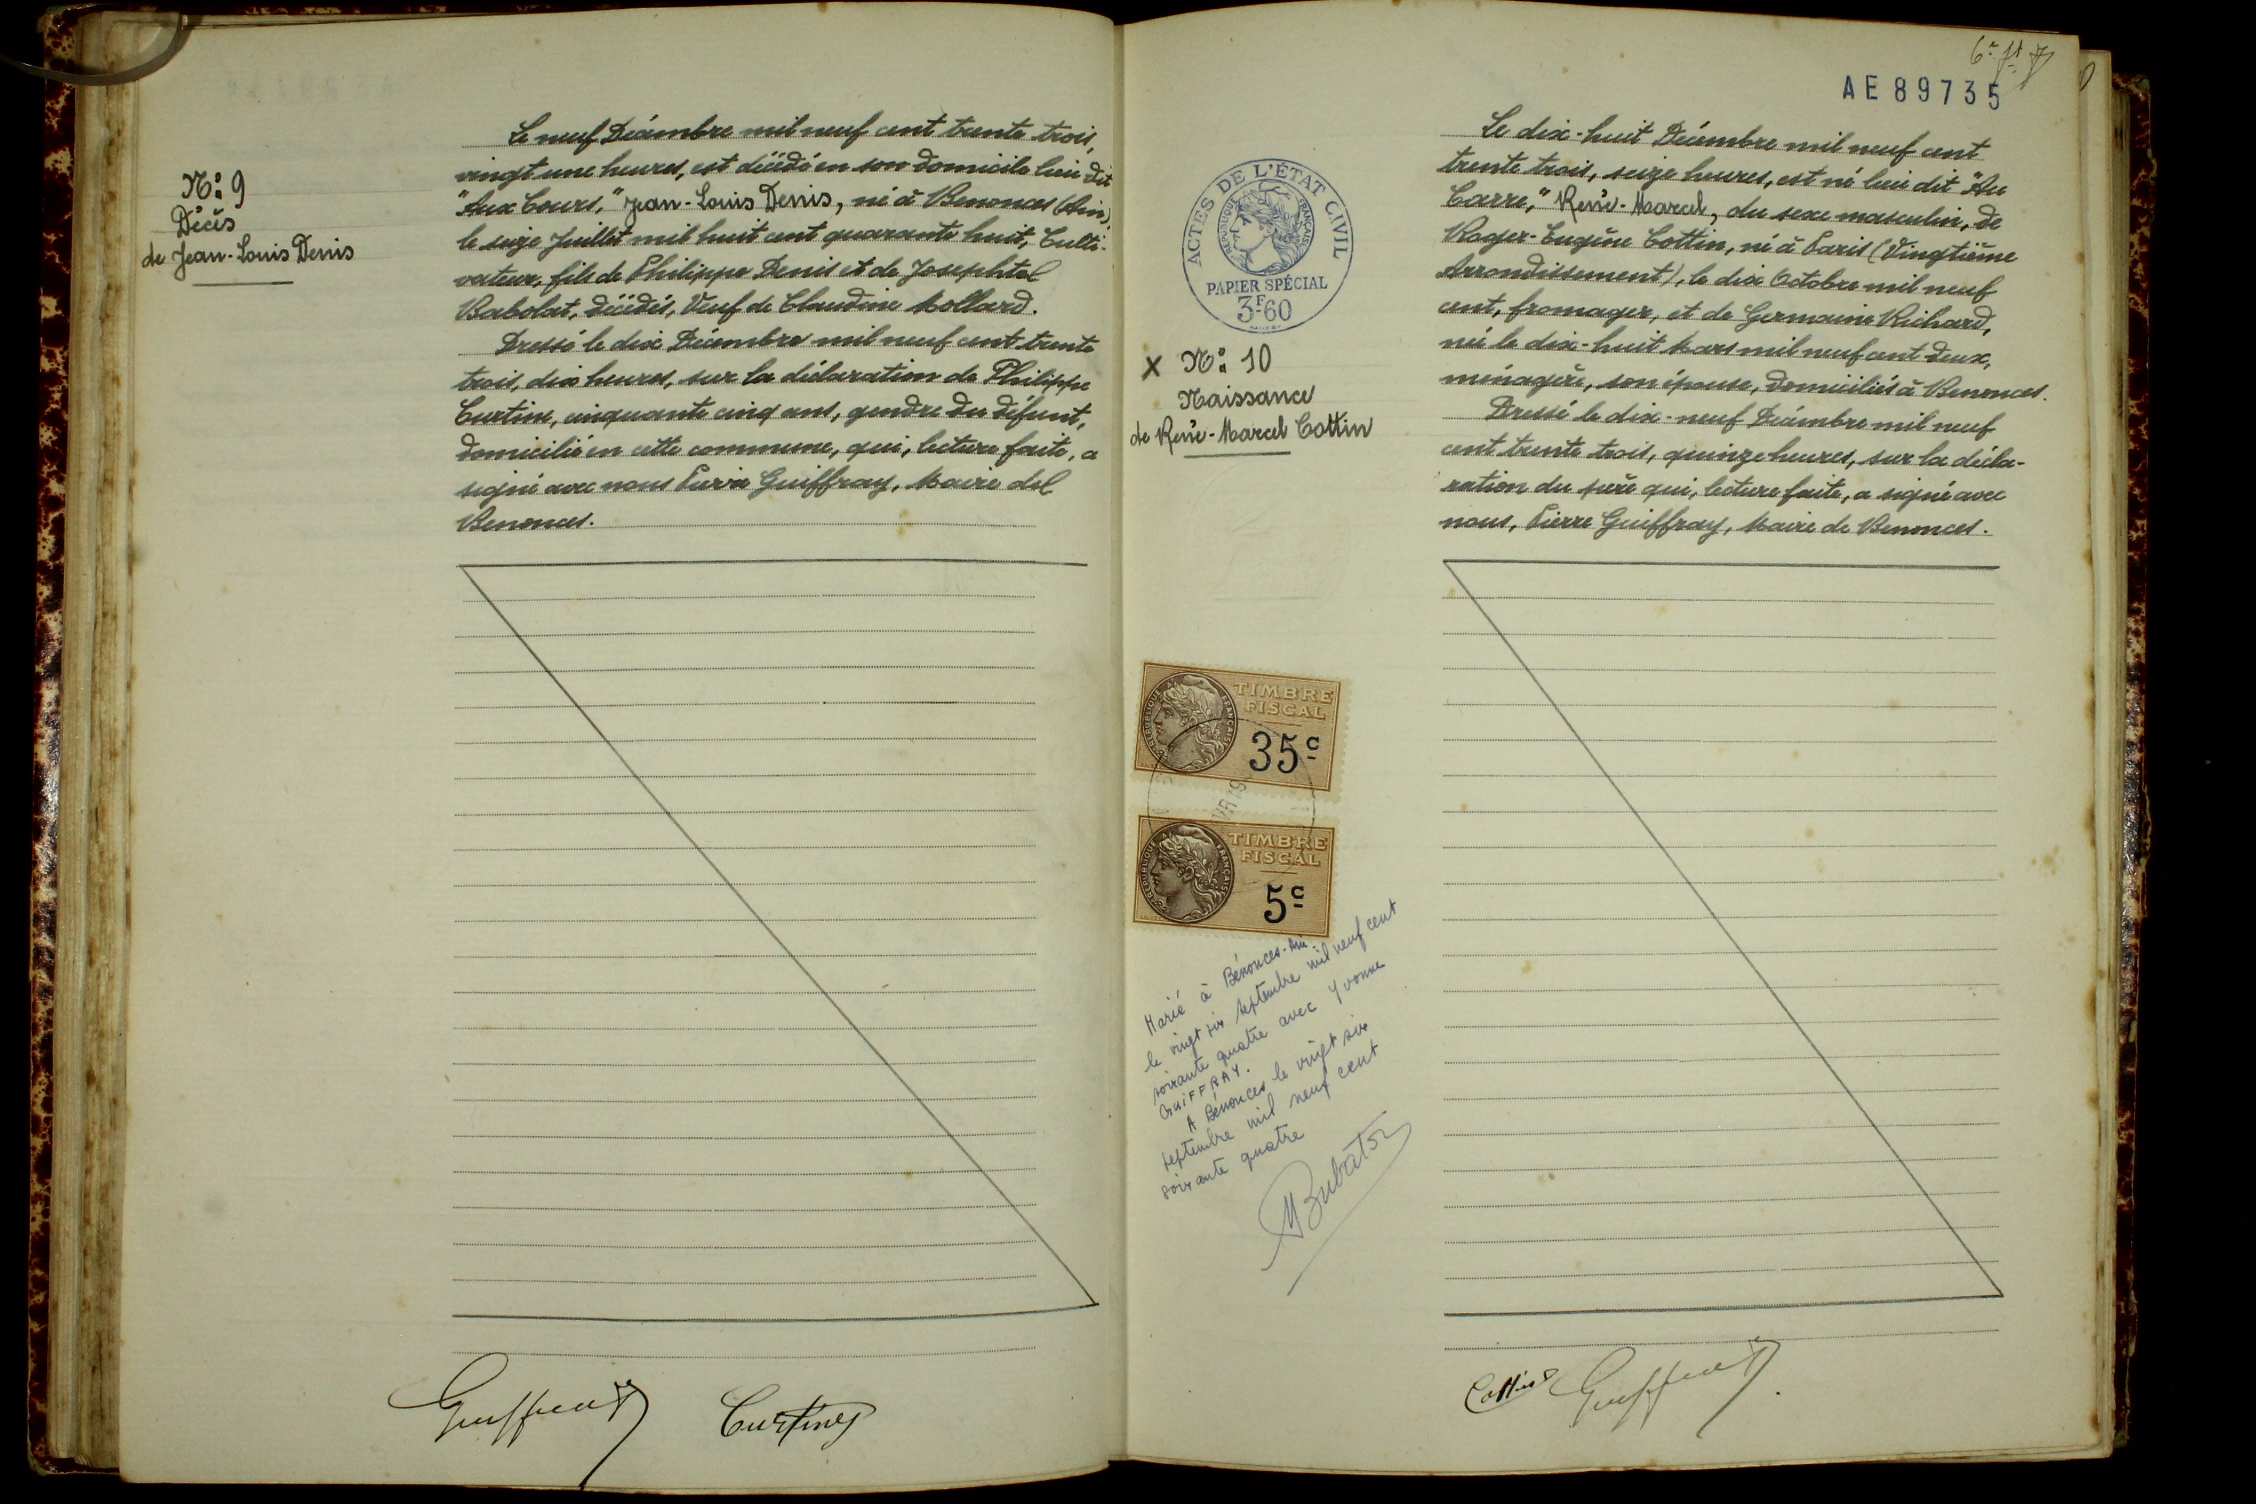 N: 9
Décès
de Jean-Louis Denis
Le neuf Décembre mil neuf cent trente trois,
vingt une heures, est décédé en son domicile lieu dit
"Aux Cours," Jean-Louis Denis, né à Benonces (Ain),
le seize Juillet mil huit cent quarante huit, Culti-
vateur, fils de Philippe Denis et de Josephte
Babolat, décédés, Veuf de Claudine Mollard.
Dressé le dix Décembre mil neuf cent trente
trois, dix heures, sur la déclaration de Philippe
Curtine, cinquante cinq ans, gendre du défunt,
domicilié en cette commune, qui, lecture faite, a
signé avec nous Pierre Guiffray, Maire de
Benonces.
Guiffray Curtine
AE 89735
ACTES DE L'ÉTAT CIVIL
RÉPUBLIQUE FRANÇAISE
PAPIER SPÉCIAL
3F60
X N: 10
Naissance
de René-Marcel Cottin
Le dix-huit Décembre mil neuf cent
trente trois, seize heures, est né lieu dit "Au
Carre," René-Marcel, du sexe masculin, de
Roger-Eugène Cottin, né à Paris (Vingtième
Arrondissement), le dix Octobre mil neuf
cent, fromager, et de Germaine Richard,
née le dix-huit Mars mil neuf cent deux,
ménagère, son épouse, domiciliés à Benonces.
Dressé le dix-neuf Décembre mil neuf
cent trente trois, quinze heures, sur la décla-
ration du père qui, lecture faite, a signé avec
nous, Pierre Guiffray, Maire de Benonces.
RÉPUBLIQUE FRANÇAISE
TIMBRE
FISCAL
35c
RÉPUBLIQUE FRANÇAISE
TIMBRE
FISCAL
5c
Marié à Bénonces-Ain
le vingt six septembre mil neuf cent
soixante quatre avec Yvonne
GUIFFRAY.
A Bénonces le vingt six
septembre mil neuf cent
soixante quatre
Cottin Guiffray